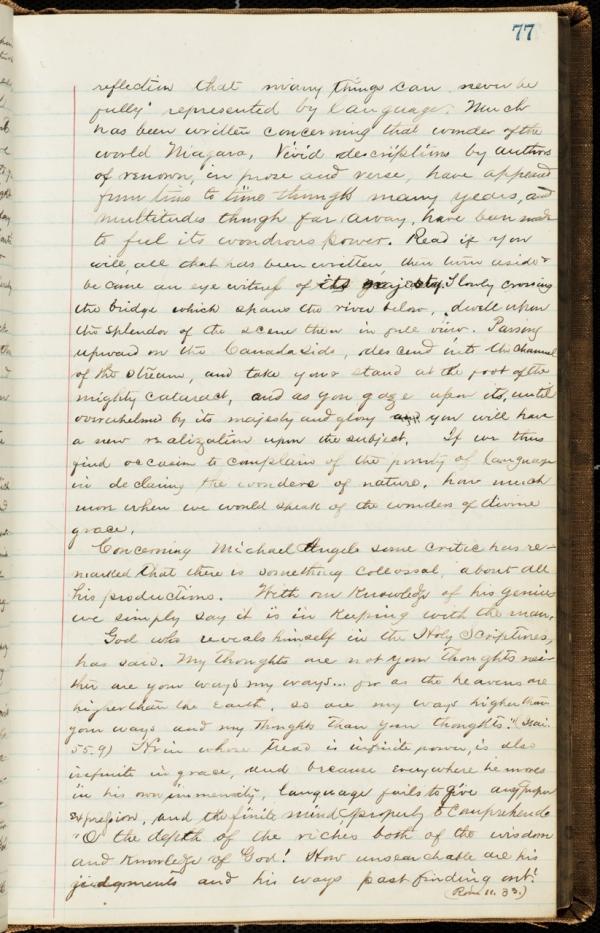 77
reflection that many things can never be
fully represented by language. Much
has been written concerning that wonder of the
world Niagara. Vivid descriptions by authors
of renown, in prose and verse, have appeared
from time to time through many years, and
multitudes though far away, have been made
to feel its wondrous power. Read if you
will, all that has been written, then turn aside &
become an eye witness of its majesty. Slowly crossing
the bridge which spans the river below, dwell upon
the splendor of the scene then in full view. Passing
upward on the Canada side, descend into the channel
of the stream, and take your stand at the foot of the
mighty cataract, and as you gaze upon its, until
overwhelmed by its majesty and glory you will have
a new realization upon the subject. If we thus
find occasion to complain of the poverty of language
in declaring the wonders of nature, how much
more when we would speak of the wonders of divine
grace.
Concerning Michael Angelo some critic has re-
marked that there is something collossal about all
his productions. With our knowledge of his genius
we simply say it is in keeping with the man.
God who reveals himself in the Holy Scriptures,
has said. My thoughts are not your thoughts nei-
ther are your ways my ways... for as the heavens are
higher than the earth, so are my ways higher than
your ways and my thoughts than your thoughts." (Isai.
55.9) He in whose tread is infinite power, is also
infinite in grace, and because everywhere he moves
in his own immensity, language fails to give any proper
expression, and the finite mind properly to comprehend.
"O the depth of the riches both of the wisdom
and knowledge of God! How unsearchable are his
judgments and his ways past finding out!
(Rom 11. 33.)